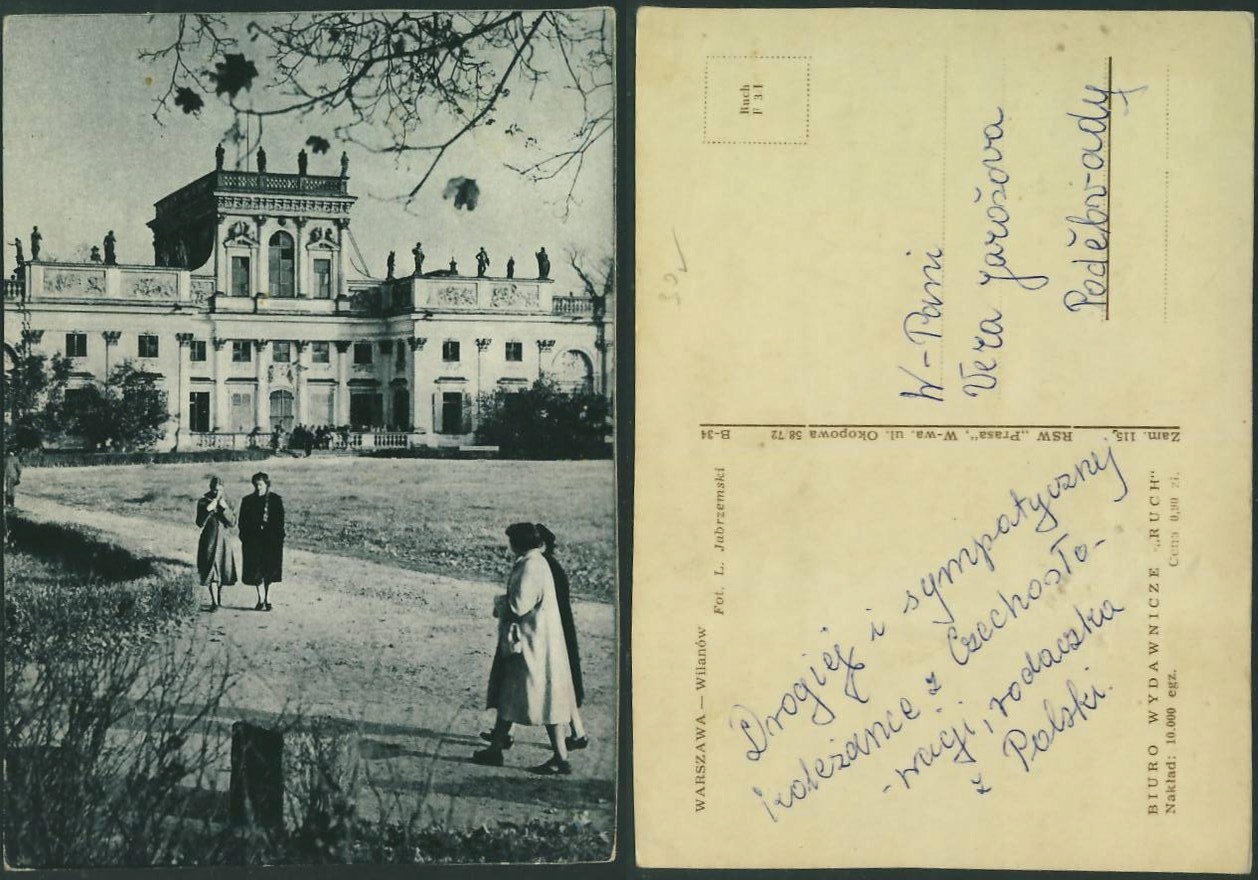 WARSZAWA — Wilanów
Fot. L. Jabrzemski
Drogiej i sympatycznej
koleżance z Czechosło-
-wacji, rodaczka
z Polski.
BIURO WYDAWNICZE „RUCH"
Nakład: 10.000 egz.
Cena 0,90 zł.
Zam. 115,
RSW „Prasa", W-wa, ul. Okopowa 58/72
B-34
Ruch
F 3-I
W-Pani
Vera Jarošova
Poděbrady